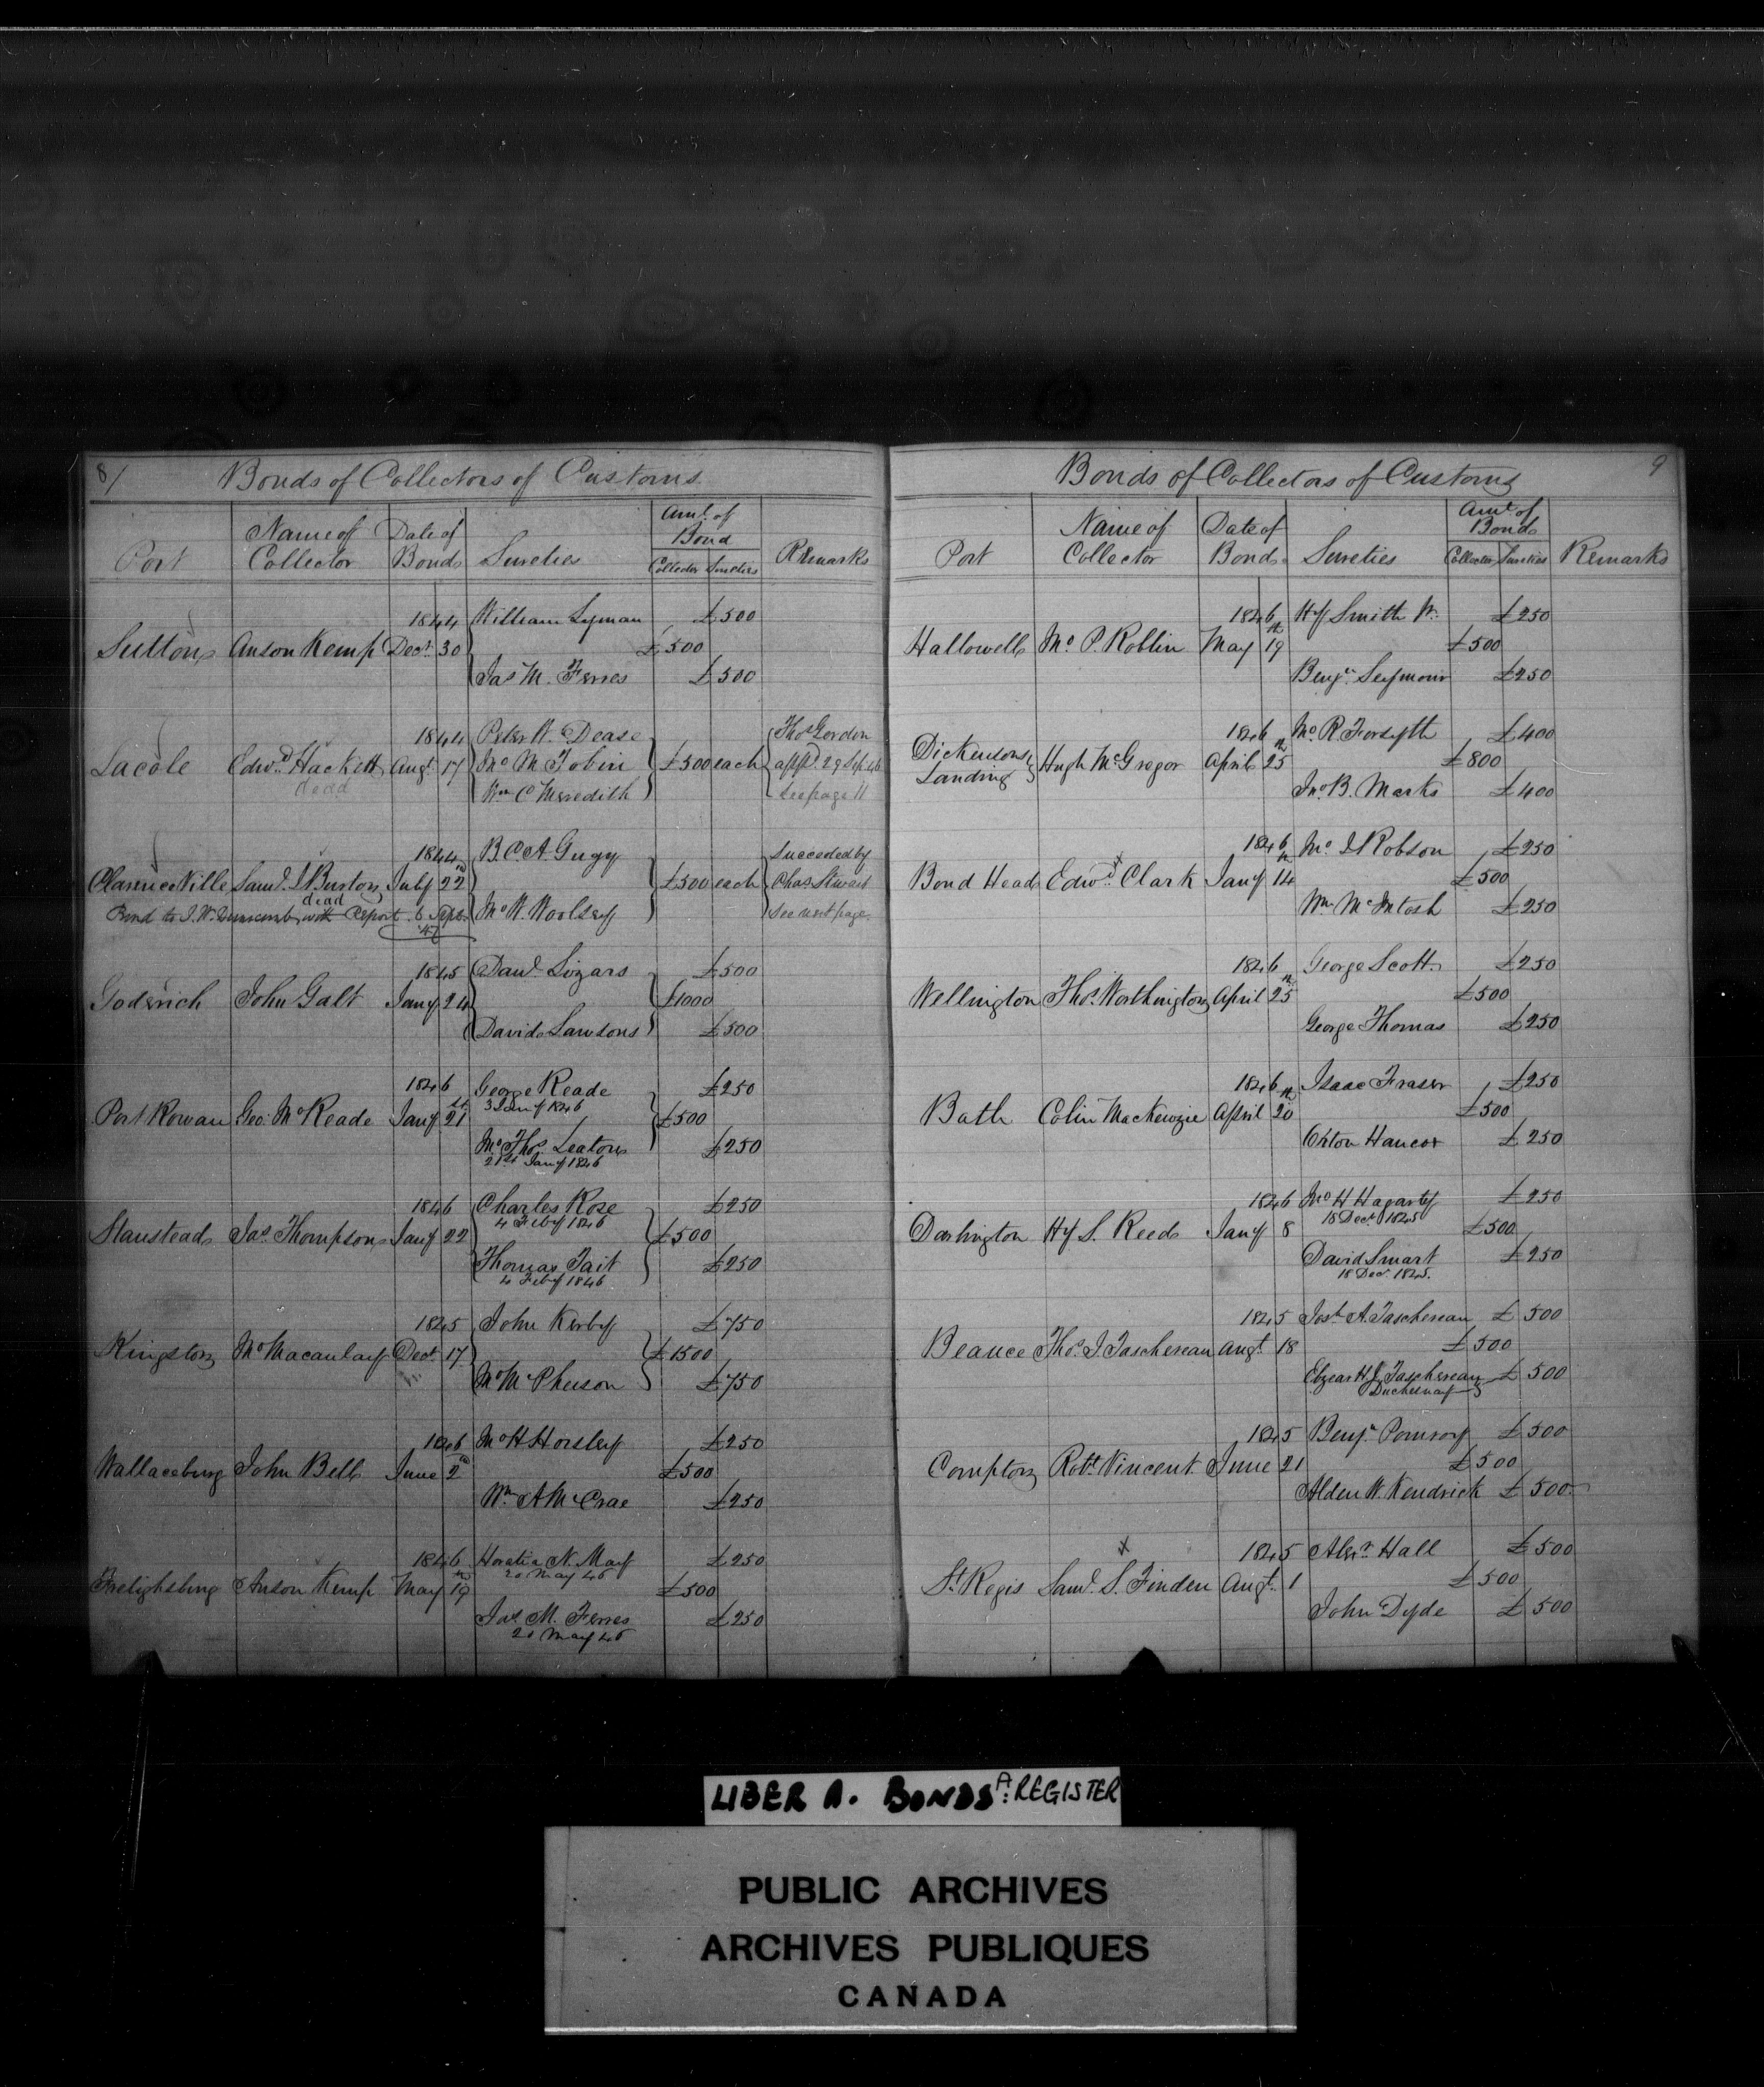 8/
Bonds of Collectors of Customs
Port Name of Collector Date of Bond Sureties Amt. of Bond Collector Sureties Remarks
1844 William Lyman £500
Sutton Anson Kemp Decr. 30 £500
Jas M. Ferres £500
1844 Peter W. Dease Thos Gordon
Lacole Edwd Hackett Augt 17 Jno M Tobin £500 each appd. 29 Sep 46
dead Wm C Meredith See page 11
1844 B.C.A. Gugy Succeeded by
Clarenceville Saml. Burton July 22nd £500 each Chas Stewart
dead
Bond to with Report 6 Jno W. Woolsey See next page
1845 Danl. Lizars £500
Goderich John Galt Jany 24 £1000
David Lawson £500
1846 George Reade £250
3 Jany 1846
Port Rowan Geo. Mc Reade Jany 21st £500
Jno Thos. Leaton £250
21st Jany 1846
1846 Charles Rose £250
4 Feby 1846
Stanstead Jas. Thompson Jany 22 £500
Thomas Tait £250
4 Feby 1846
1845 John Kerby £750
Kingston Jno Macaulay Decr. 17 £1500
Jno McPherson £750
1846 Jno H Horsley £250
Wallaceburg John Bell June 2nd £500
Wm A McCrae £250
1846 Horatio N. May £250
20 May 46
Frelighsburg Anson Kemp May 19th £500
Jas. M. Ferres £250
20 May 46
9
Bonds of Collectors of Customs
Port Name of Collector Date of Bond Sureties Amt of Bonds Collector Sureties Remarks
1846 Hy Smith £250
Hallowell Jno P. Roblin May 19th £500
Benjn. Seymour £250
1846 Jno R Forsyth £400
Dickensons Landing Hugh McGregor April 25th £800
Jno. B. Marks £400
1846 Jno Robson £250
Bond Head Edwd. Clark Jany 14th £500
Wm McIntosh £250
1846 George Scott £250
Wellington Thos. Worthington April 25th £500
George Thomas £250
1846 Isaac Fraser £250
Bath Colin MacKenzie April 20th £500
Orton Hancox £250
1846 Jno H Hagarty £250
18 Decr 1845
Darlington Hy S. Reed Jany 8 £500
David Smart £250
18 Decr 1845.
1845 Josh. A. Taschereau £500
Beauce Thos. J. Taschereau Augt. 18 £500
Elzear H. J. Taschereau £500
Duchesnay
1845 Benjn. Pomroy £500
Compton Robt. Vincent June 21 £500
Alden W. Kendrick £500
x 1845 Alexr. Hall £500
St. Regis Saml. S. Finden Augt. 1 £500
John Dyde £500
LIBER A. BONDS A: REGISTER
PUBLIC ARCHIVES
ARCHIVES PUBLIQUES
CANADA